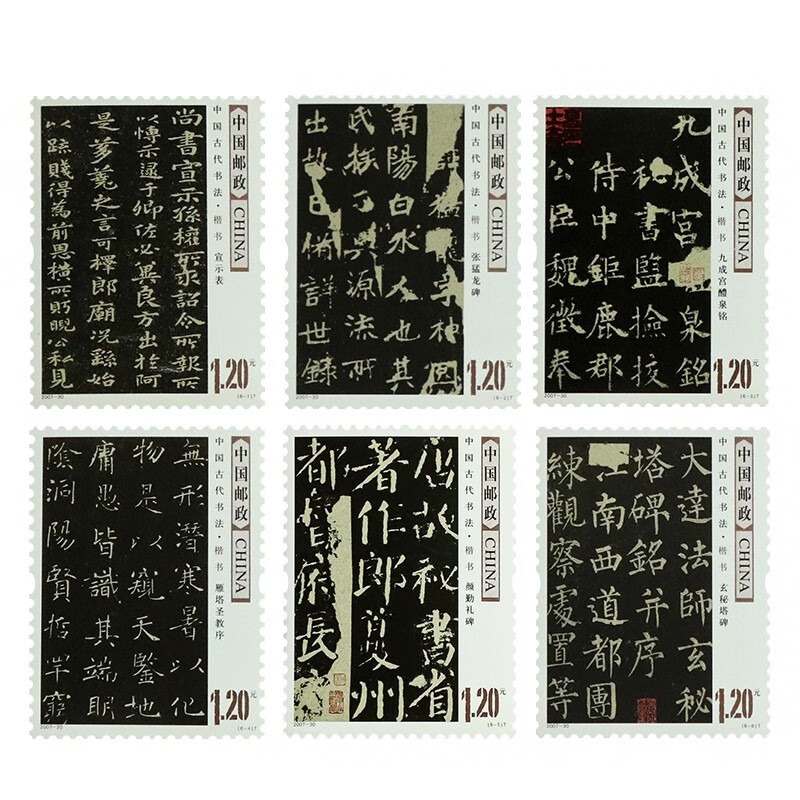 中国邮政 CHINA
中国古代书法·楷书 宣示表
尚書宣示孫權所求詔令所報所
以博示逮于卿佐必冀良方出於阿
是芻蕘之言可擇郎廟況繇始
以疏賤得為前恩橫所眄睨公私見
1.20元
2007-30
(6-1)T
中国邮政 CHINA
中国古代书法·楷书 张猛龙碑
猛龍字神囧
南陽白水人也其
氏族分興源流所
出故已備詳世錄
1.20元
2007-30
(6-2)T
中国邮政 CHINA
中国古代书法·楷书 九成宫醴泉铭
九成宮泉銘
秘書監撿挍
侍中鉅鹿郡
公臣魏徵奉
1.20元
2007-30
(6-3)T
中国邮政 CHINA
中国古代书法·楷书 雁塔圣教序
無形潛寒暑以化
物是以窺天鑒地
庸愚皆識其端明
陰洞陽賢哲罕窮
1.20元
2007-30
(6-4)T
中国邮政 CHINA
中国古代书法·楷书 颜勤礼碑
唐故秘書省
著作郎夔州
都督府長
1.20元
2007-30
(6-5)T
中国邮政 CHINA
中国古代书法·楷书 玄秘塔碑
大達法師玄秘
塔碑銘并序
江南西道都團
練觀察處置等
1.20元
2007-30
(6-6)T